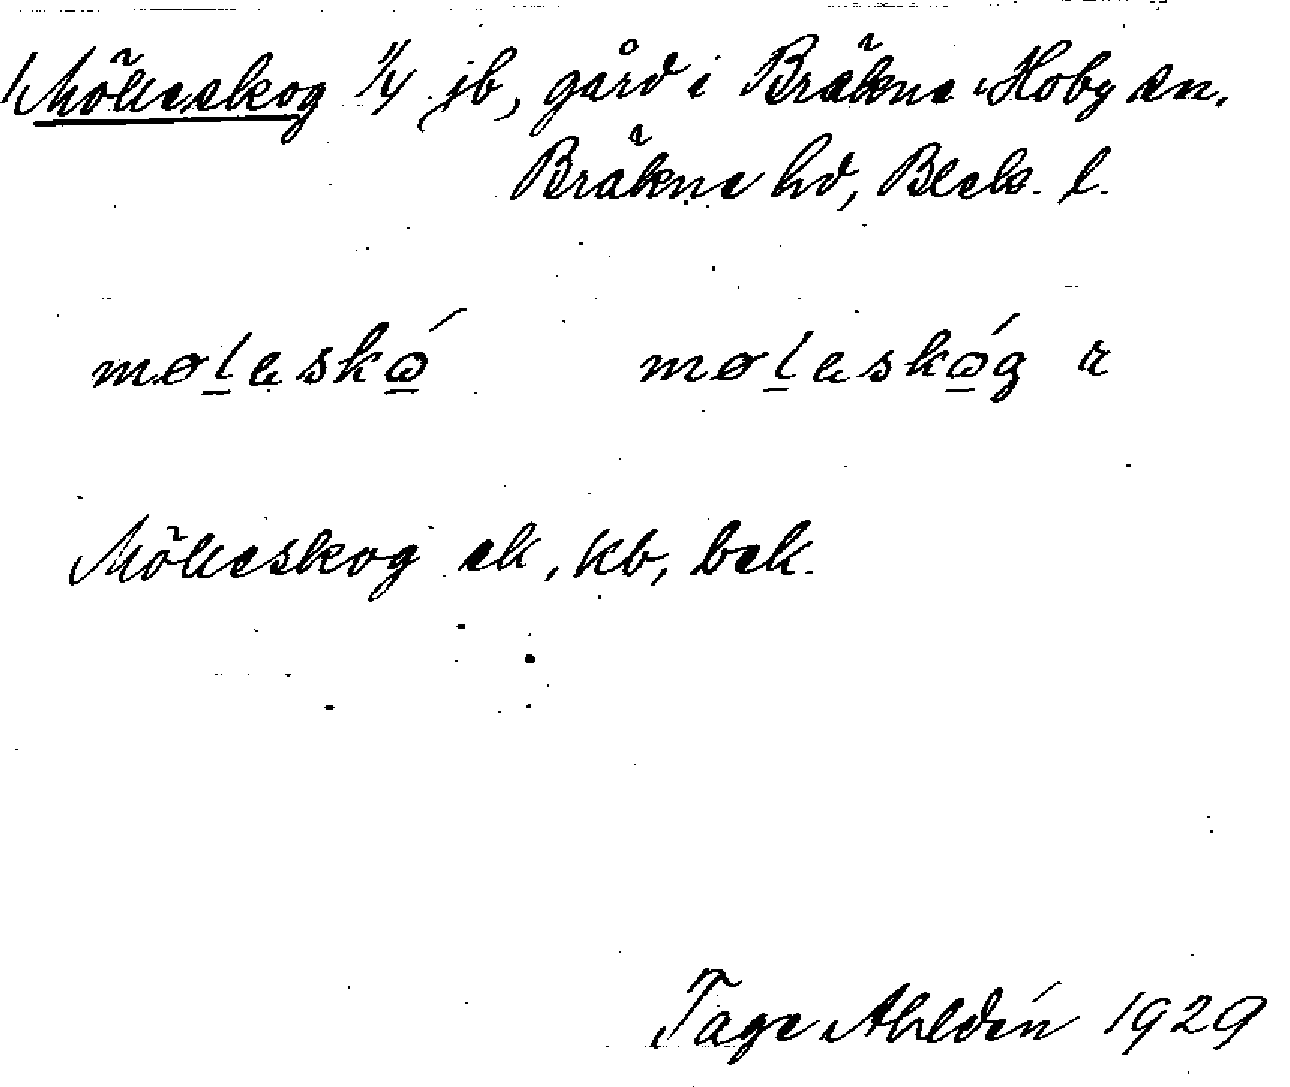 Mölleskog 1/4 jb, gård i Bräkne Hoby sn.
Bräkne hd, Blek. l.
møl̲eskώ̲ møl̲eskώ̲g r
Mölleskog ek, kb, bek.
Tage Ahldén 1929